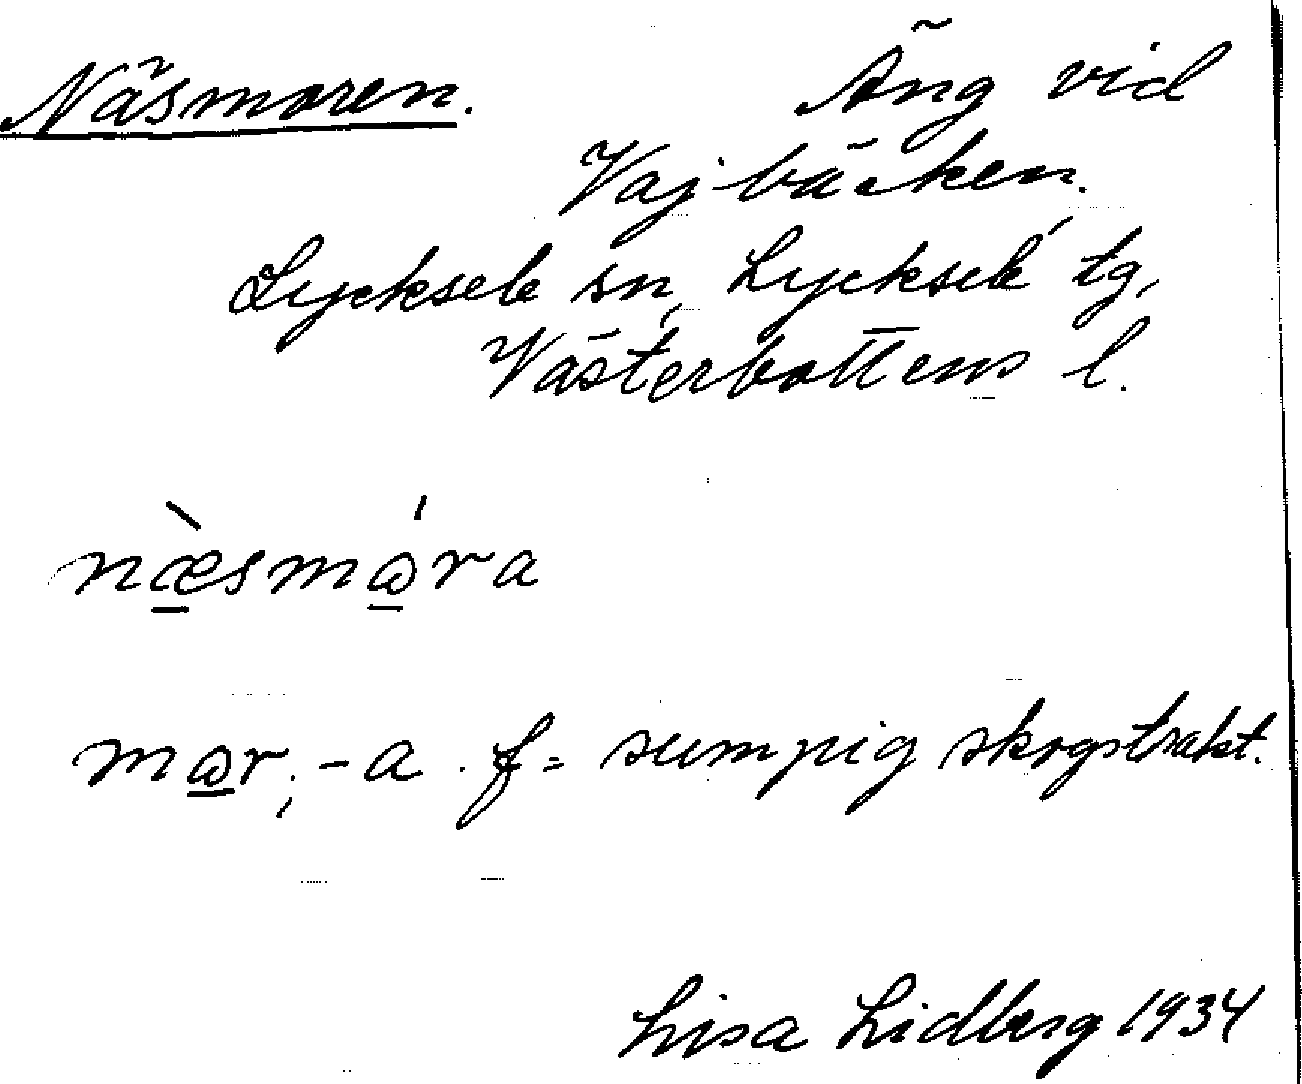 Näsmoren. Äng vid
Vajbäcken,
Lycksele sn, Lycksele tg,
Västerbottens l.
næ̠̀smɷ̠́ra
mɷ̠r, -a. f = sumpig skogstrakt.
Lisa Lidberg 1934